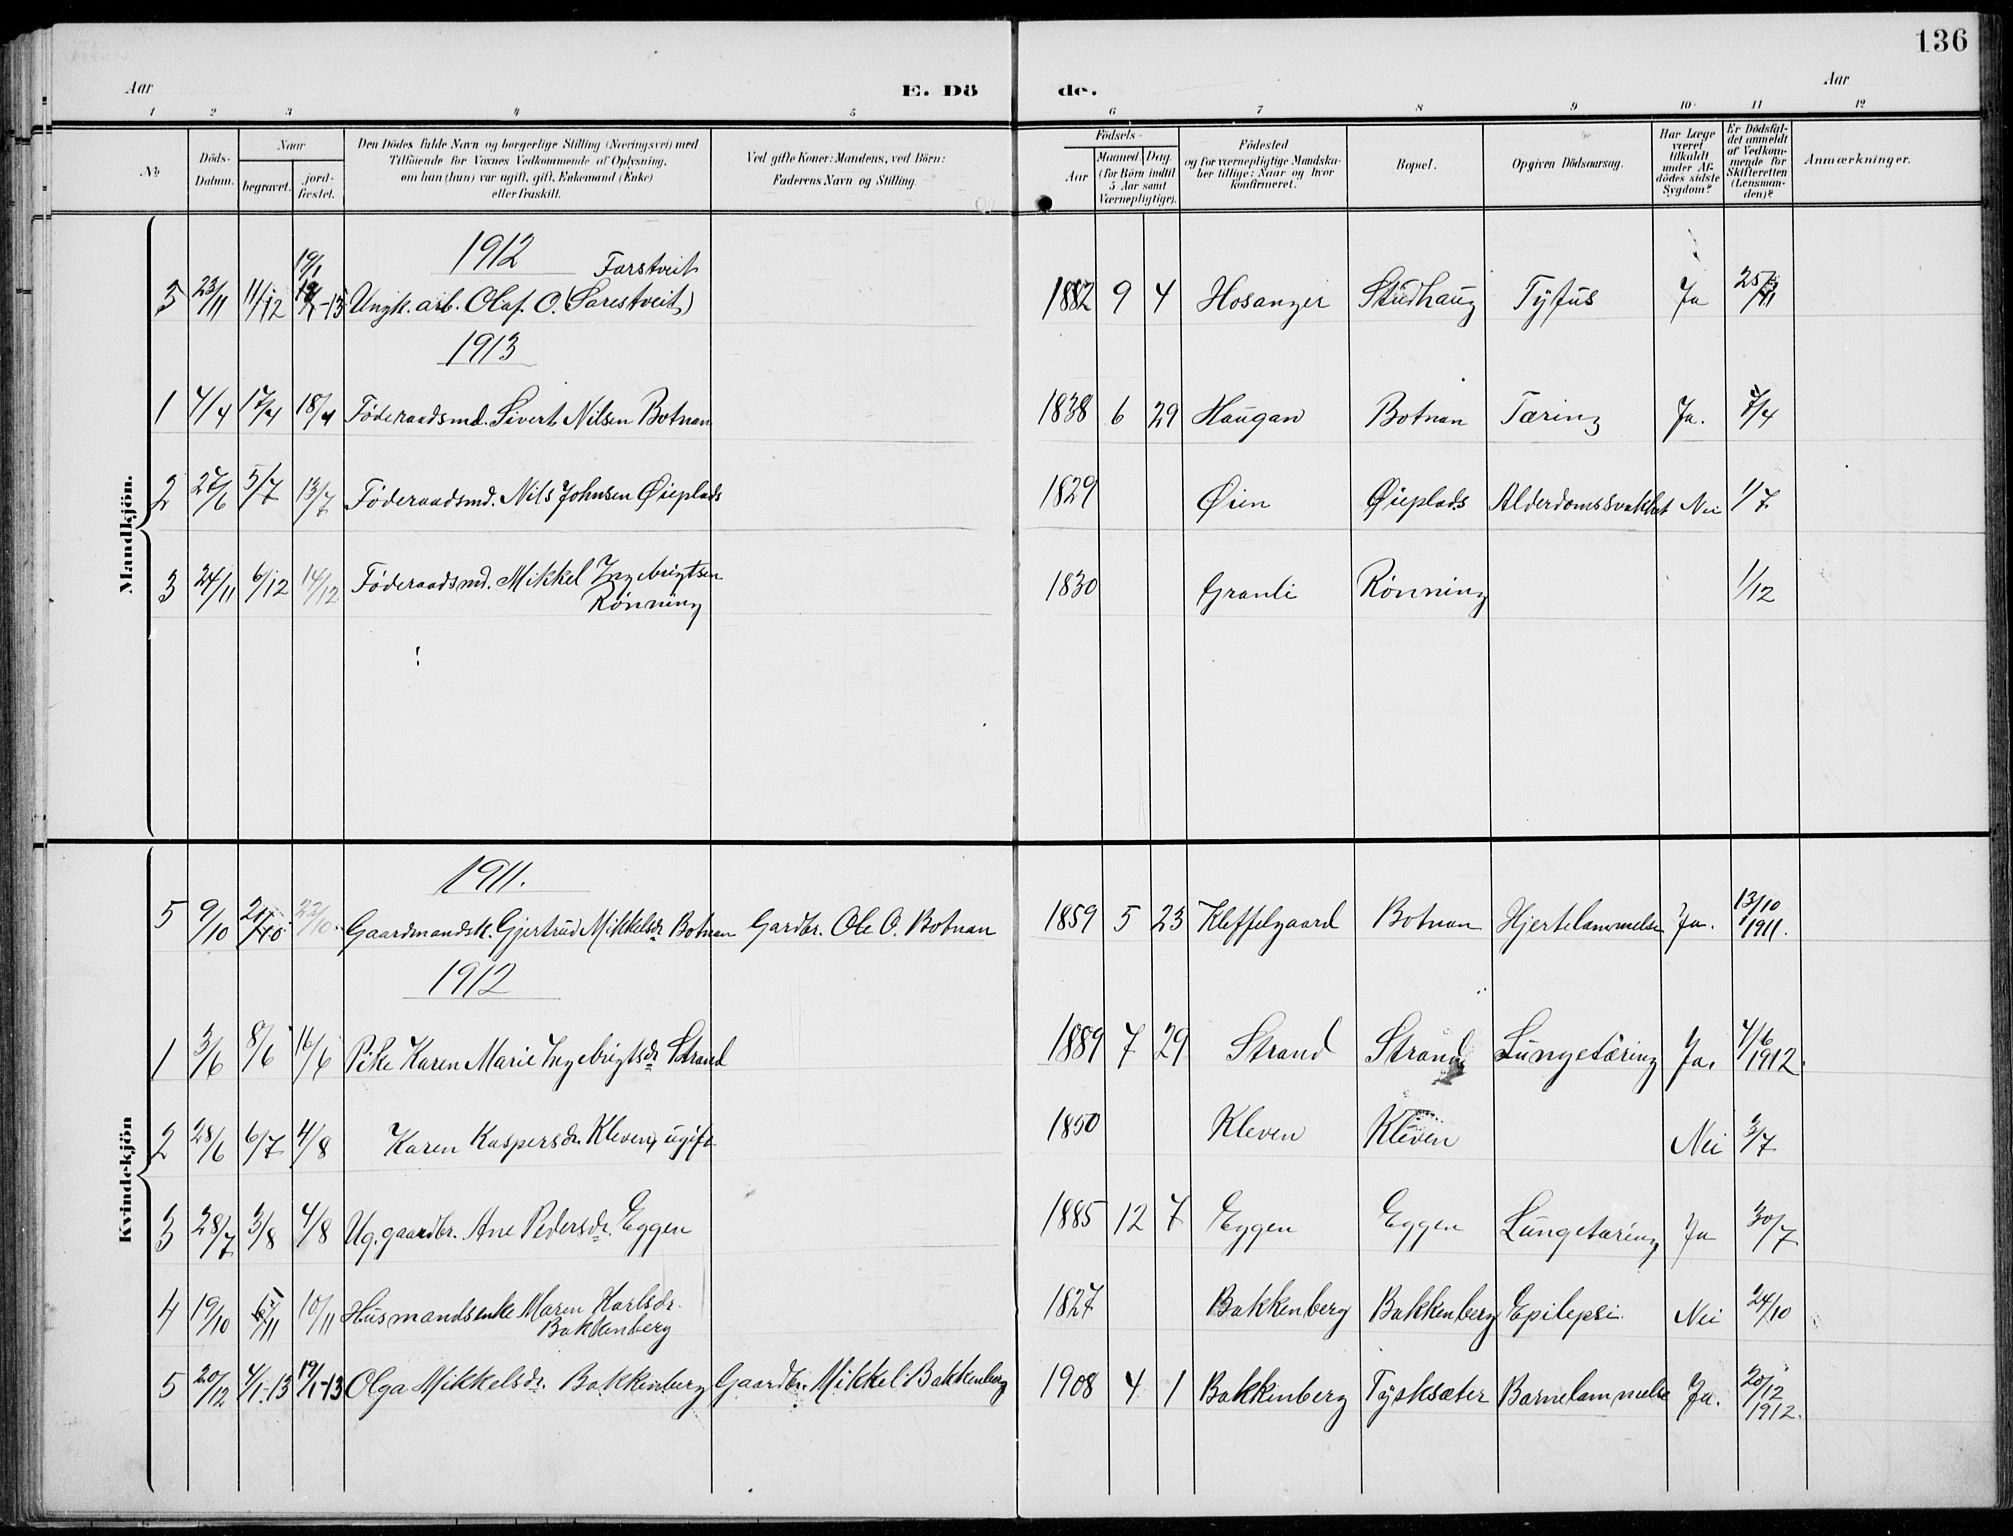 136
Aar
E. Dö
de.
Aar
1 2 3 4 5 6 7 8 9 10 11 12
No
Döds-
Datum.
Naar
begravet.
jord-
fæstet.
Den Dödes fulde Navn og borgerlige Stilling (Næringsvei) med
Tilföiende for Voxnes Vedkommende af Oplysning,
om han (hun) var ugift, gift, Enkemand (Enke)
eller fraskilt.
Ved gifte Koner: Mandens, ved Börn:
Faderens Navn og Stilling.
Födsels-
Aar
Maaned Dag.
(for Börn indtil
5 Aar samt
Værnepligtige).
Födested
og for værnepligtige Mandska-
ber tillige: Naar og hvor
konfirmeret.
Bopæl.
Opgiven Dödsaarsag.
Har Læge
været
tilkaldt
under Af-
dödes sidste
Sygdom?
Er Dödsfal-
det anmeldt
af Vedkom-
mende for
Skifteretten
(Lensman-
den)?
Anmærkninger.
Mandkjön.
1912
Farstveit
5 23/11 11/12 19/1-13 Ungk. arb. Olaf O. (Sarestveit) 1882 9 4 Hosanger Studhaug Tyfus Ja 25/11
1913
1 4/4 17/4 18/4 Föderaadsmd. Sivert Nilsen Botnan 1838 6 29 Haugan Botnan Tæring Ja. 7/4
2 27/6 5/7 13/7 Föderaadsmd. Nils Johnsen Øieplads 1829 Øien Øieplads Alderdomssvakhet Nei 1/7
3 24/11 6/12 14/12 Föderaadsmd. Mikkel Ingebrigtsen 1830 Granli Rönning 1/12
Rönning
Kvindekjön
1911.
5 9/10 21/10 22/10. Gaardmandsk. Gjertrud Mikkelsdr. Botnan Gardbr. Ole O. Botnan 1859 5 23 Kleffelgaard Botnan Hjertelammelse Ja. 13/10
1911.
1912
1 3/6 8/6 16/6 Pike Karen Marie Ingebrigtsdr. Strand 1889 7 29 Strand Strand Lungetæring Ja. 4/6
1912.
2 28/6 6/7 4/8 Karen Kaspersdr. Kleven, ugift 1850 Kleven Kleven Nei 3/7
3 28/7 3/8 4/8 Ug. gaardbr. Ane Pedersdr. Eggen 1885 12 7 Eggen Eggen Lungetæring Ja 30/7
4 19/10 /11 10/11 Husmandsenke Maren Karlsdr. 1827 Bakkenberg Bakkenberg Epilepsi Nei 24/10
Bakkenberg
5 20/12 4/1-13 19/1-13 Olga Mikkelsdr. Bakkenberg Gaardbr. Mikkel Bakkenberg 1908 4 1 Bakkenberg Tysksæter Barnelammelse Ja. 20/12
1912.